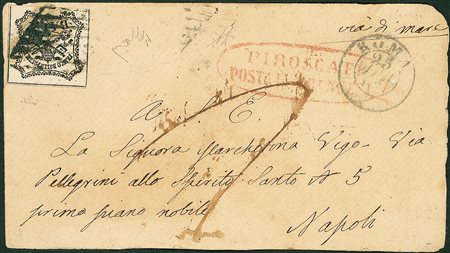 via di mare
ROMA
PIROSCAFI
POSTALI FRANCESI
A. S. E.
La Signora Marchesina Vigo - Via
Pellegrini allo Spirito Santo N 5
primo piano nobile
Napoli
7